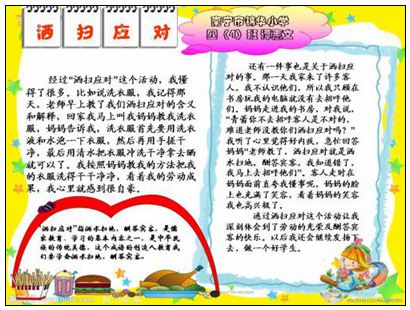 洒 扫 应 对
南宁市锦华小学
四（4）班 谭惠文
经过“洒扫应对”这个活动，我懂
得了很多，比如说洗衣服，我记得那
天，老师早上教了我们洒扫应对的含义
和解释，回家我马上叫我妈妈教我洗衣
服，妈妈告诉我，洗衣服首先要用洗衣
液和水泡一下衣服，然后再用手搓干
净，最后用清水把衣服冲洗干净拿去晒
就可以了，我按照妈妈教我的方法把我
的衣服洗得干干净净，看着我的劳动成
果，我心里就感到很自豪。
“洒扫应对”指洒水扫地，酬答宾客，是儒
家教育、学习的基本内容之一，是中华民
族的传统美德，这个成语的引入教育我
们要学会洒水扫地，酬答宾客。
还有一件事也是关于洒扫应
对的事，那一天我家来了许多客
人，我不认识他们，所以我只顾在
书房玩我的电脑就没有去招呼他
们，妈妈走进我的书房，对我说，
“青蕾你不去招呼客人是不对的，
难道老师没教你们洒扫应对吗？”
我听了心里觉得好内疚，急忙回答
妈妈“老师教了，洒扫应对就是洒
水扫地，酬答宾客，我知道错了，
我马上去招呼他们”，客人走时在
妈妈面前直夸我懂事呢，妈妈的脸
上也充满了笑容，看着妈妈的笑容
我也高兴极了。
通过洒扫应对这个活动让我
深刻体会到了劳动的光荣及酬答宾
客的快乐。以后我还会继续发扬下
去，做一个好学生。